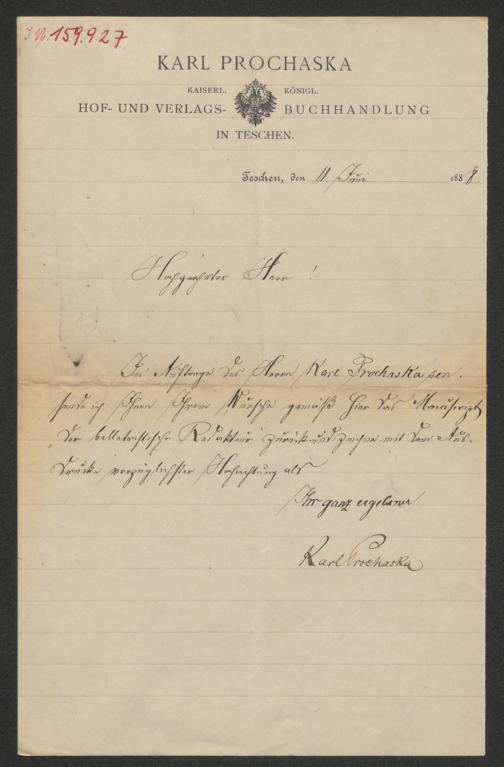 J.N. 159.927
KARL PROCHASKA
KAISERL. KÖNIGL.
HOF- UND VERLAGS- BUCHHANDLUNG
IN TESCHEN.
Teschen, den 11. Juni 1888
Hochgeehrter Herr!
Im Auftrage des Herrn Karl Prochaska sen.
sende ich Ihnen Ihrem Wunsche gemäß hier das Manuscript
„Der belletristische Redakteur“ zurück und zeichne mit dem Aus-
drucke vorzüglichster Hochachtung als
Ihr ganz ergebener
Karl Prochaska